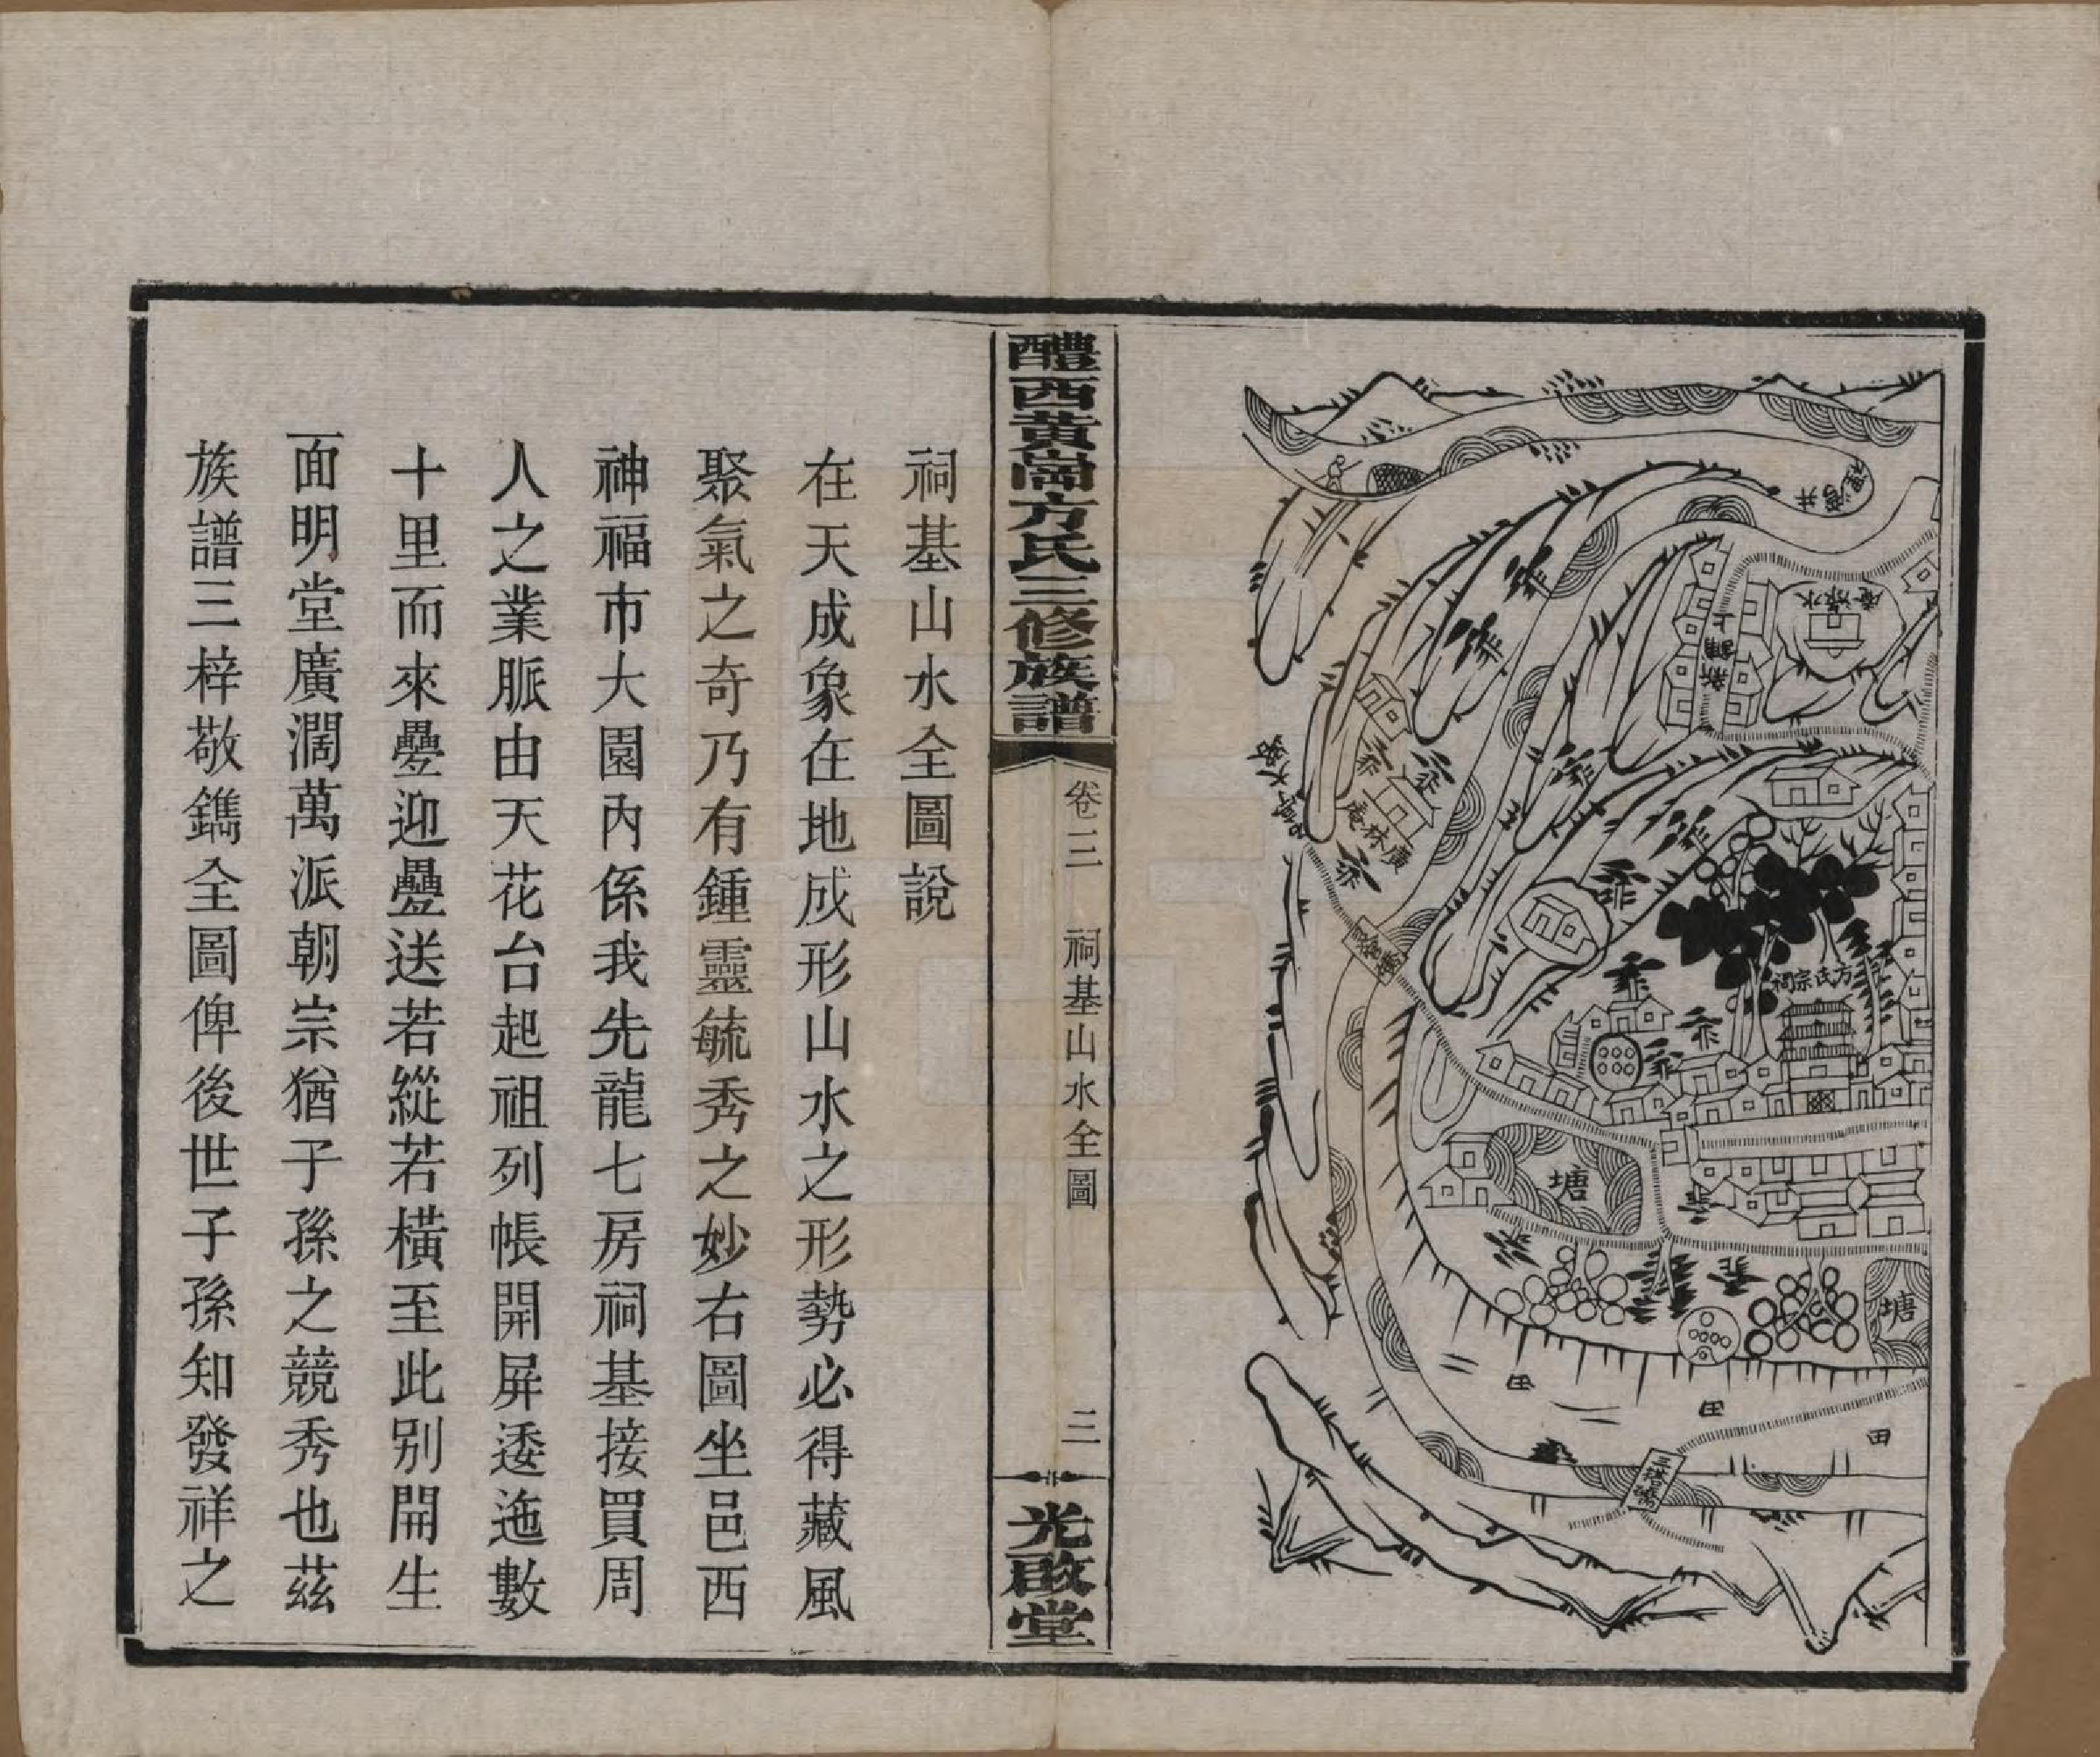 方氏宗祠
塘
塘
田
田
田
三搭橋
水漈庵
新鋪上
廣林庵
醴西黃崗方氏三修族譜
卷三
祠基山水全圖
三
光啟堂
祠基山水全圖說
在天成象在地成形山水之形勢必得藏風
聚氣之奇乃有鍾靈毓秀之妙右圖坐邑西
神福市大園內係我先龍七房祠基接買周
人之業脈由天花台起祖列帳開屏逶迤數
十里而來疊迎疊送若縱若橫至此別開生
面明堂廣濶萬派朝宗猶子孫之競秀也茲
族譜三梓敬鐫全圖俾後世子孫知發祥之